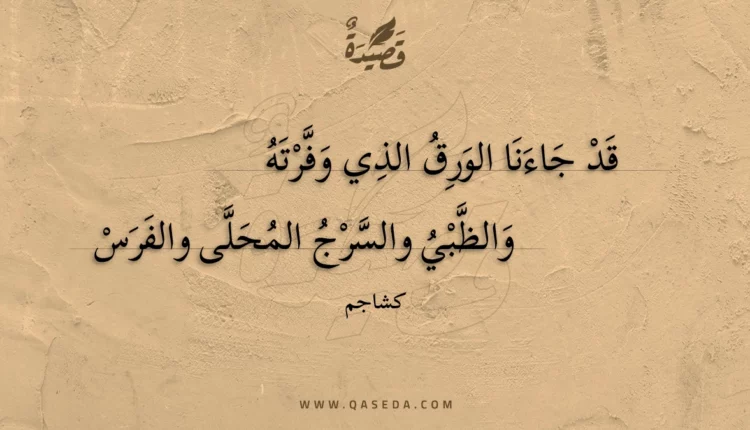 قَصِيْدَةٌ
قَدْ جَاءَنَا الوَرِقُ الذِي وَفَّرْتَهُ
وَالظَّبْيُ والسَّرْجُ المُحَلَّى والفَرَسْ
كشاجم
WWW.QASEDA.COM